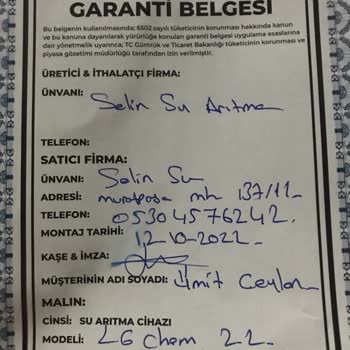 GARANTİ BELGESİ
Bu belgenin kullanılmasında; 6502 sayılı tüketicinin korunması hakkında kanun
ve bu kanuna dayanılarak yürürlüğe konulan garanti belgesi uygulama esaslarına
dair yönetmelik uyarınca; TC Gümrük ve Ticaret Bakanlığı tüketicinin korunması ve
piyasa gözetimi müdürlüğü tarafından izin verilmiştir.
ÜRETİCİ & İTHALATÇI FİRMA:
ÜNVANI: Selin Su Arıtma
TELEFON:
SATICI FİRMA:
ÜNVANI: Selin Su
ADRESİ: muratpaşa mh 137/11-
TELEFON: 05304576242.
MONTAJ TARİHİ: 12-10-2022-
KAŞE & İMZA:
MÜŞTERİNİN ADI SOYADI: Ümit Ceylan
MALIN:
CİNSİ: SU ARITMA CİHAZI
MODELİ: LG Chem 22-